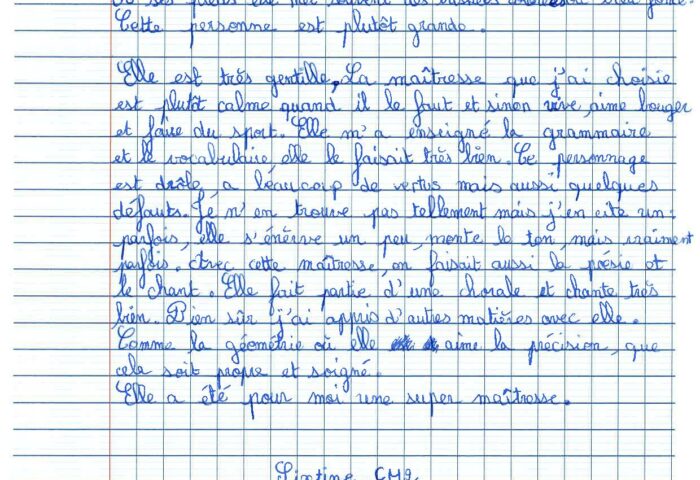 ses
Cette personne est plutôt grande.
Elle est très gentille, La maîtresse que j'ai choisie
est plutôt calme quand il le faut et sinon vive, aime bouger
et faire du sport. Elle m'a enseigné la grammaire
et le vocabulaire elle le faisait très bien. Ce personnage
est drôle, a beaucoup de vertus mais aussi quelques
défauts. Je n'en trouve pas tellement mais j'en cite un:
parfois, elle s'énèrve un peu, monte le ton, mais vraiment
parfois. Avec cette maîtresse, on faisait aussi la pésie et
le chant. Elle fait partie d'une chorale et chante très
bien. Bien sûr j'ai appis d'autres matières avec elle.
Comme la géométrie où elle aime la précision, que
cela soit propre et soigné.
Elle a été pour moi une super maîtresse.
Sixtine CM2